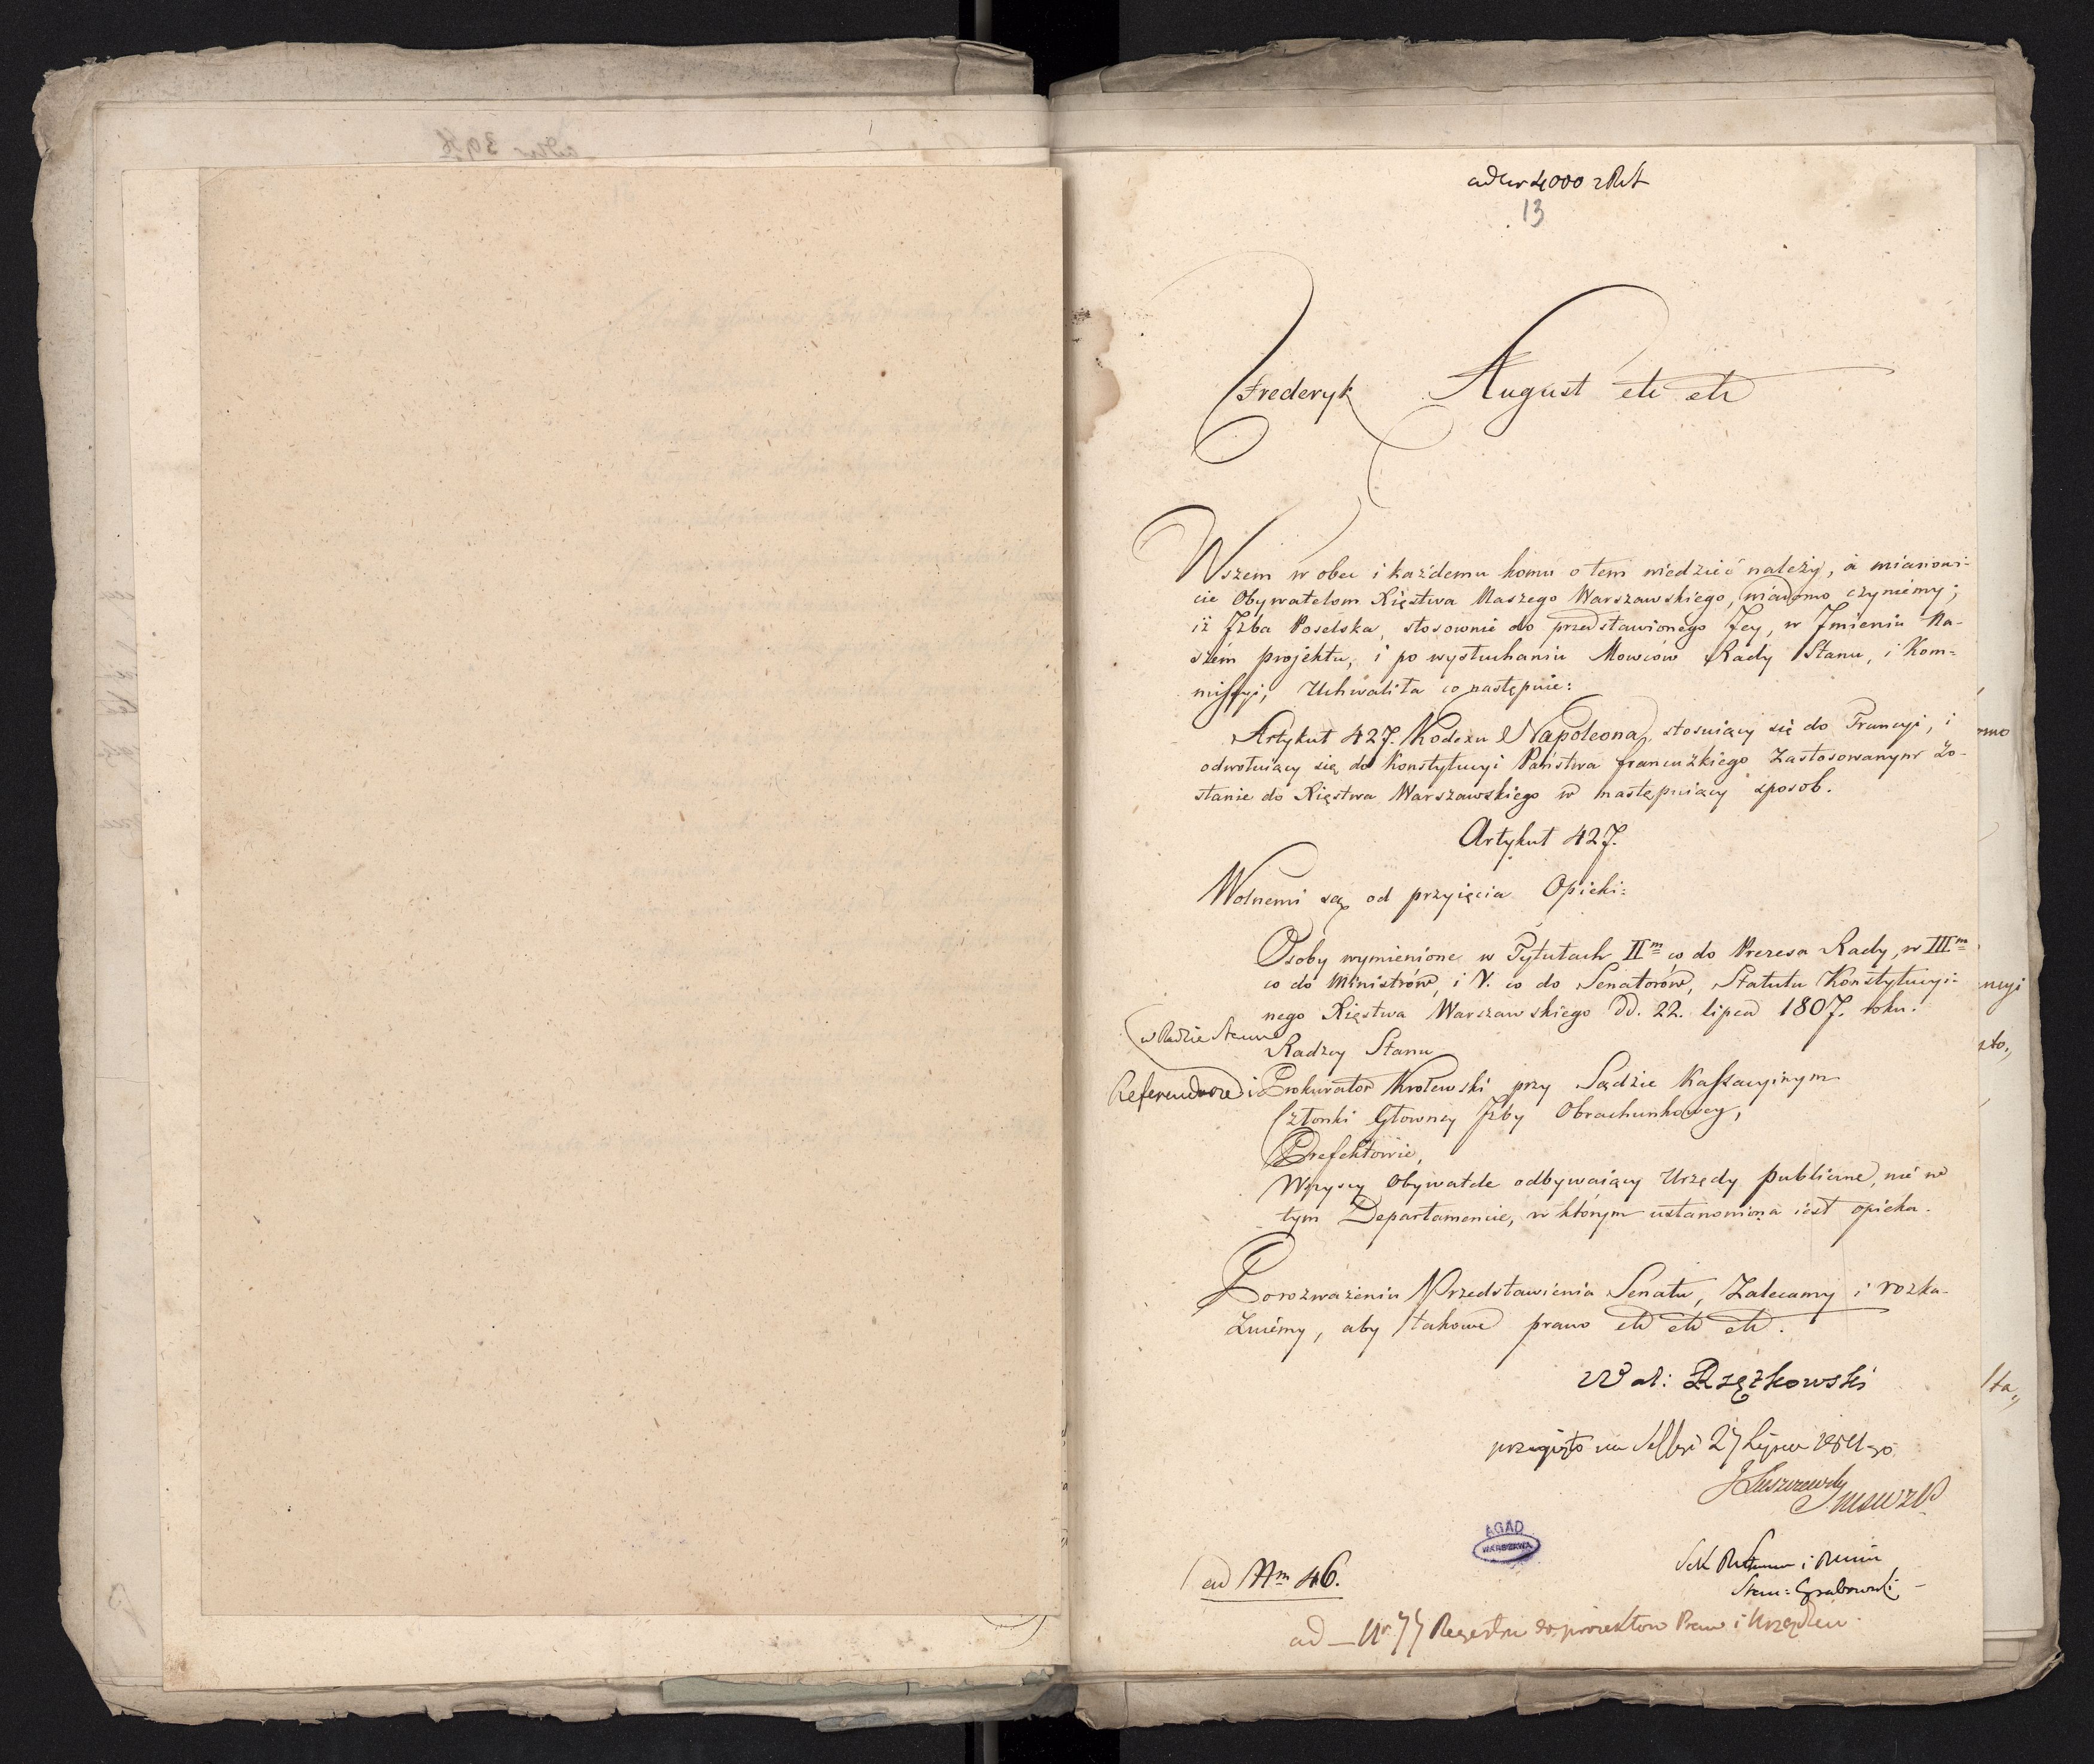 ad Nr 4000 z R. St.
13
Frederyk August etc etc
Wszem w obec i każdemu komu o tem wiedzieć należy, a mianowi-
cie Obywatelom Xięstwa Naszego Warszawskiego, wiadomo czyniemy;
iż Jzba Poselska, stosownie do przedstawionego Jey, w Jmieniu Na-
szém projektu, i po wysłuchaniu Mowców Rady Stanu, i Kom-
missyi, Uchwaliła co następuie:
Artykuł 427. Kodexu Napoleona, stosuiący się do Francyi, i
odwołuiący się do Konstytucyi Państwa francuzkiego Zastosowanym Zo-
stanie do Xięstwa Warszawskiego w następuiący sposob.
Artykuł 427.
Wolnemi są od przyięcia Opieki:
Osoby wymienione w Tytułach IIm co do Prezesa Rady, w IIIm
co do Ministrów, i V. co do Senatorów, Statutu Konstytucyi-
nego Xięstwa Warszawskiego dd. 22. lipca 1807. roku.
w Radzie Stanu
Radzcy Stanu
Referendarze i Prokurator Krolewski przy Sądzie Kassacyinym
Członki Głowney Jzby Obrachunkowey,
Prefektowie,
Wszyscy Obywatele odbywaiący Urzędy publiczne, nie w
tym Departamencie, w którym ustanowiona iest opieka.
Po rozważeniu Przedstawienia Senatu, Zalecamy i rozka-
Zuiémy, aby takowe prawo etc etc etc.
Wal: Rzężkowski
przyjęto na Sessyi 27 Lipca
J Łuszczewski
Stan: Grabowski
AGAD
WARSZAWA
ad Nm 46.
ad Nr 77 Regestru do proiektow Praw i Urządzen.